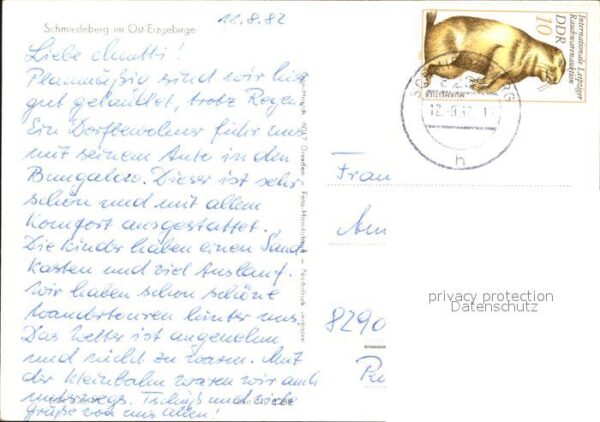 11.8.82
Schmiedeberg im Ost-Erzgebirge
Liebe Mutti!
Planmäßig sind wir hier
gut gelandet, trotz Regen.
Ein Dorfbewohner fuhr uns
mit seinem Auto in den
Bungalow. Dieser ist sehr
schön und mit allem
Komfort ausgestattet.
Die Kinder haben einen Sand-
kasten und viel Auslauf.
Wir haben schon schöne
Wandertouren hinter uns.
Das Wetter ist angenehm
und nicht zu warm. Mit
der Kleinbahn waren wir auch
unterwegs. Tschüß und viele
grüße von uns allen!
8017 Dresden – Foto
Nachdruck verboten
Internationale Leipziger
Rauchwarenauktion
DDR
10
12.-8.82
h
Frau
Am
8290
privacy protection
Datenschutz